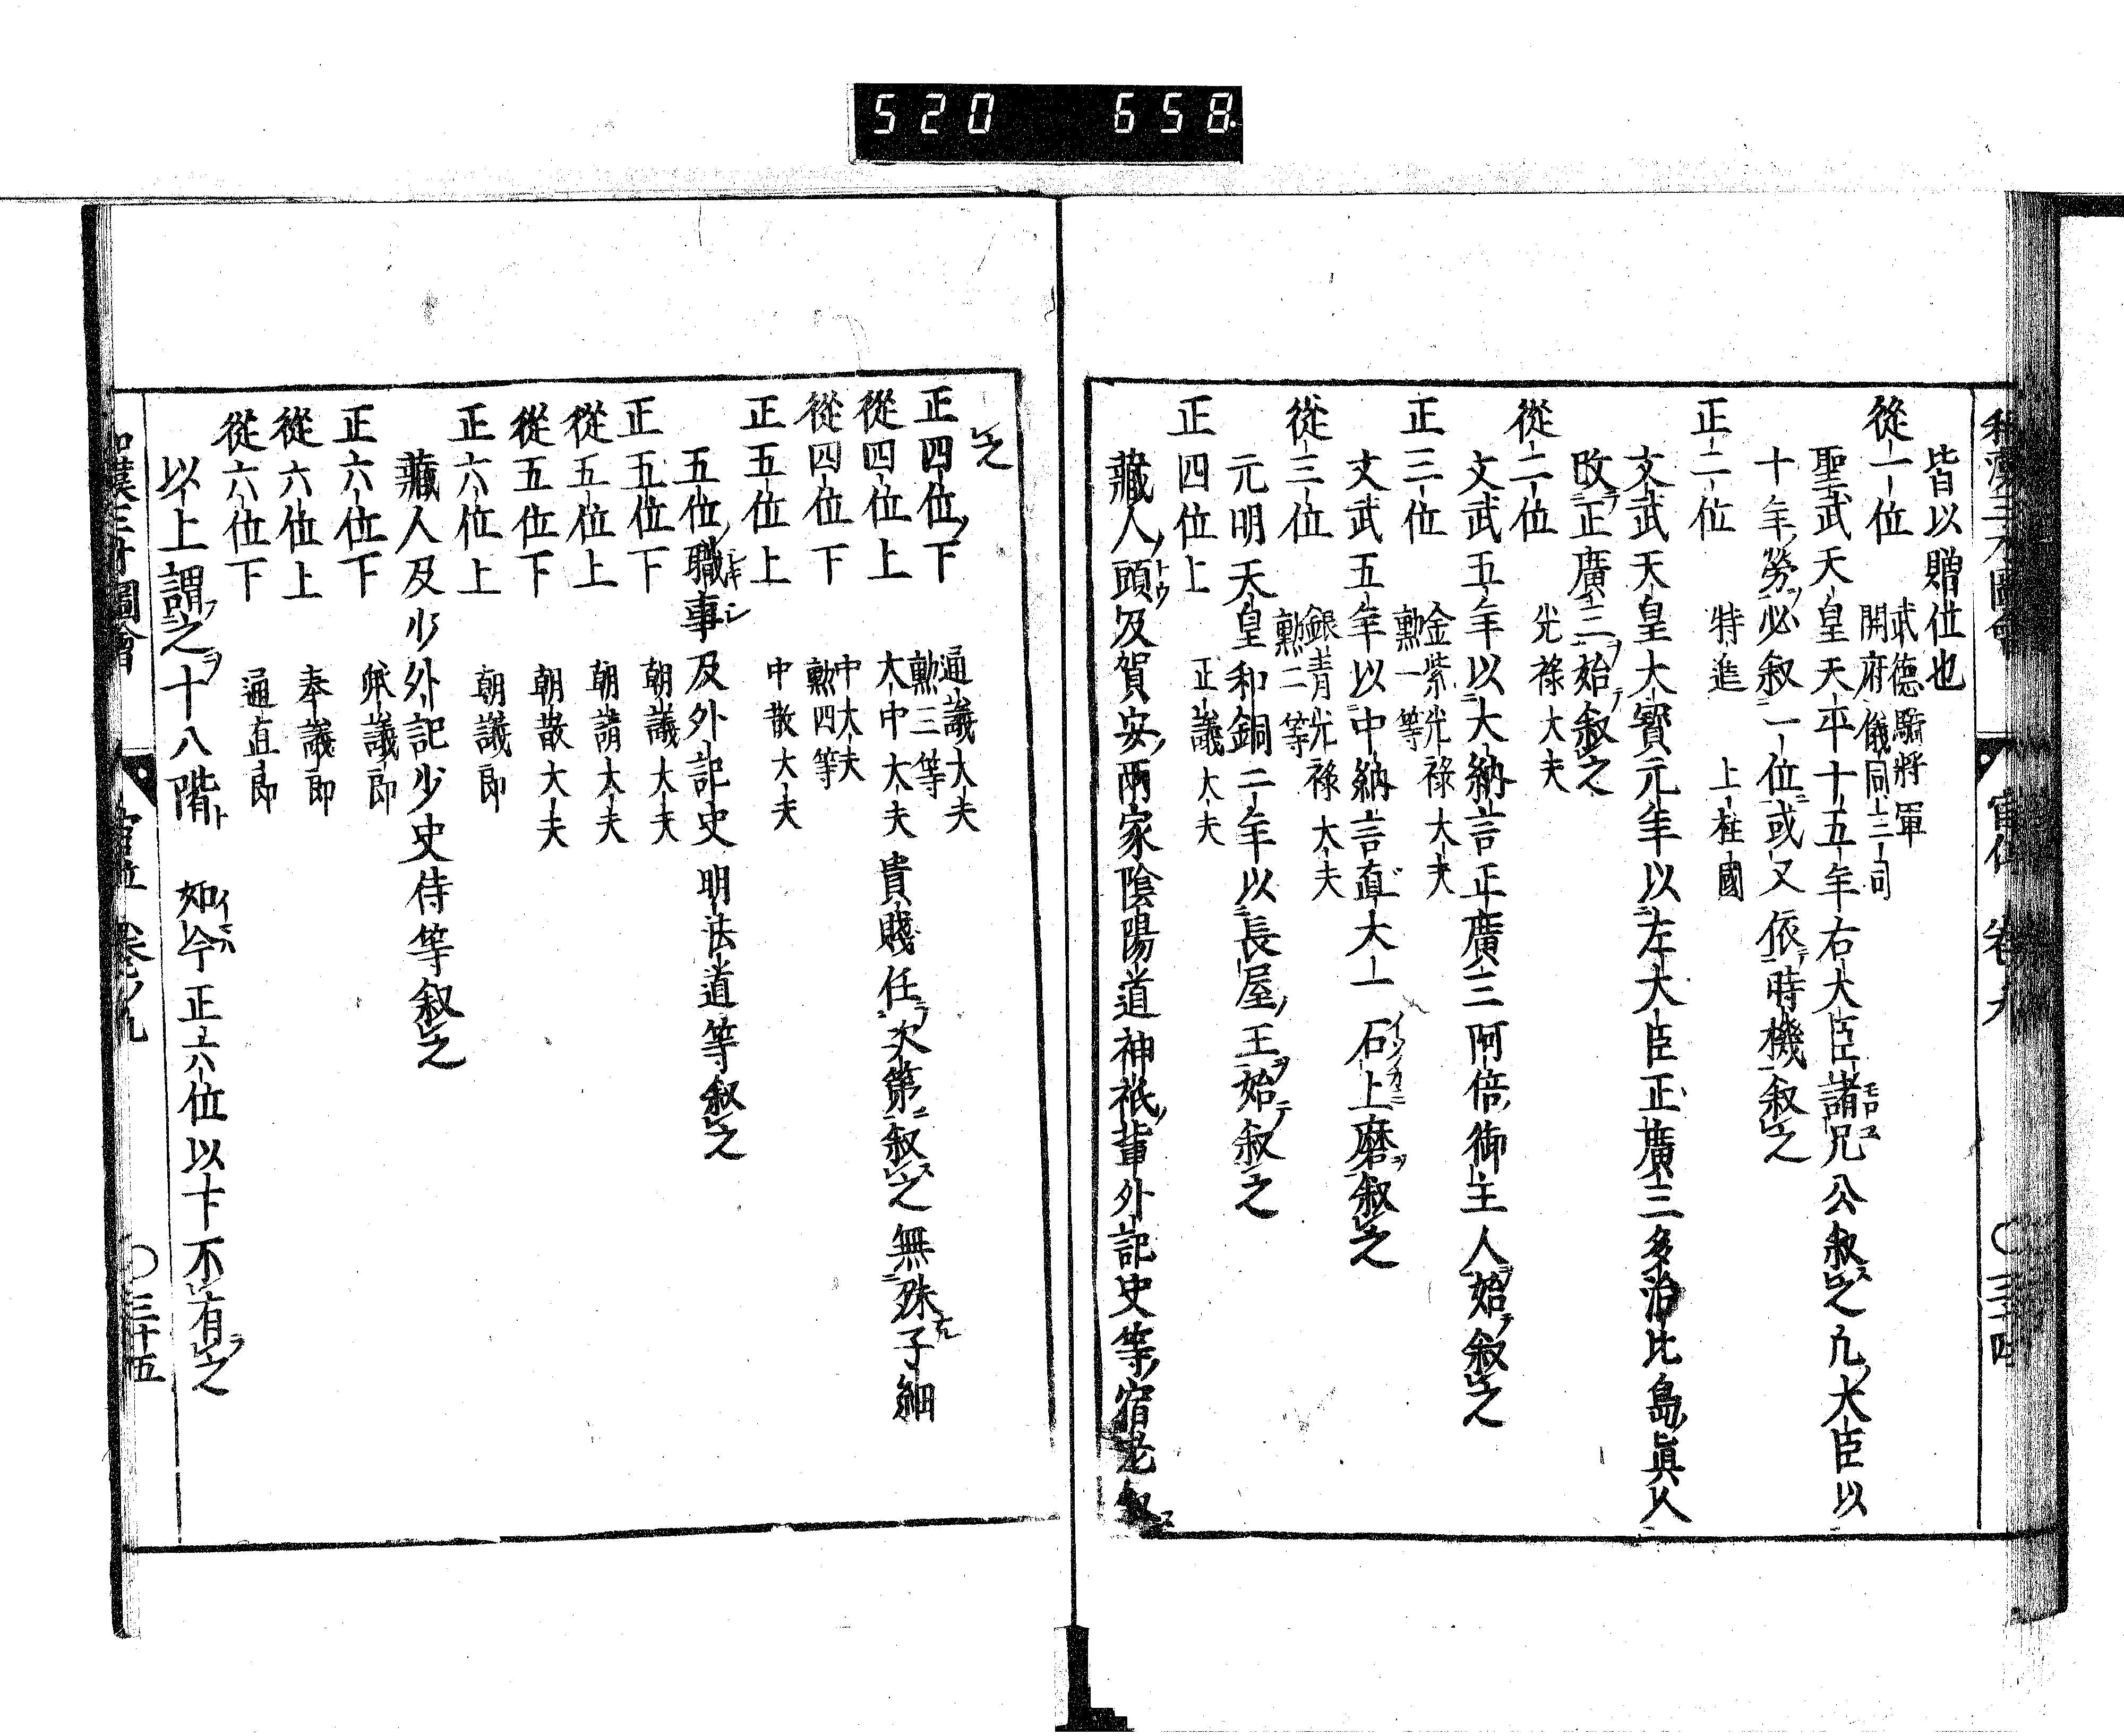 520 658
皆以贈位也
從一位 武德驃將軍
開府儀同三司
聖武天皇天平十五年右大臣諸兄公叙之凢大臣以
十年勞必叙一位或又依時機叙之
正二位 特進 上柱國
文武天皇大寳元年以左大臣正廣三多治比島眞人
改正廣三始叙之
從二位 光祿大夫
文武五年以大納言正廣三阿倍御主人始叙之
正三位 金紫光祿大夫
勲一等
文武五年以中納言直大一石上磨叙之
從三位 銀青光祿大夫
勲二等
元明天皇和銅二年以長屋王始叙之
正四位上 正議大夫
藏人頭及賀安兩家陰陽道神祇軰外記史等宿老叙
之
正四位下 通議大夫
勲三等
從四位上 大中大夫 貴賤任次第叙之無殊子細
從四位下 中大夫
勲四等
正五位上 中散大夫
五位職事及外記史明法道等叙之
正五位下 朝議大夫
從五位上 朝請大夫
從五位下 朝散大夫
正六位上 朝議郎
藏人及少外記少史侍等叙之
正六位下 議郎
從六位上 奉議郎
從六位下 通直郎
以上謂之十八階 如今正六位以下不有之
和漢三才圖會 官位 卷ノ九 〇三十五